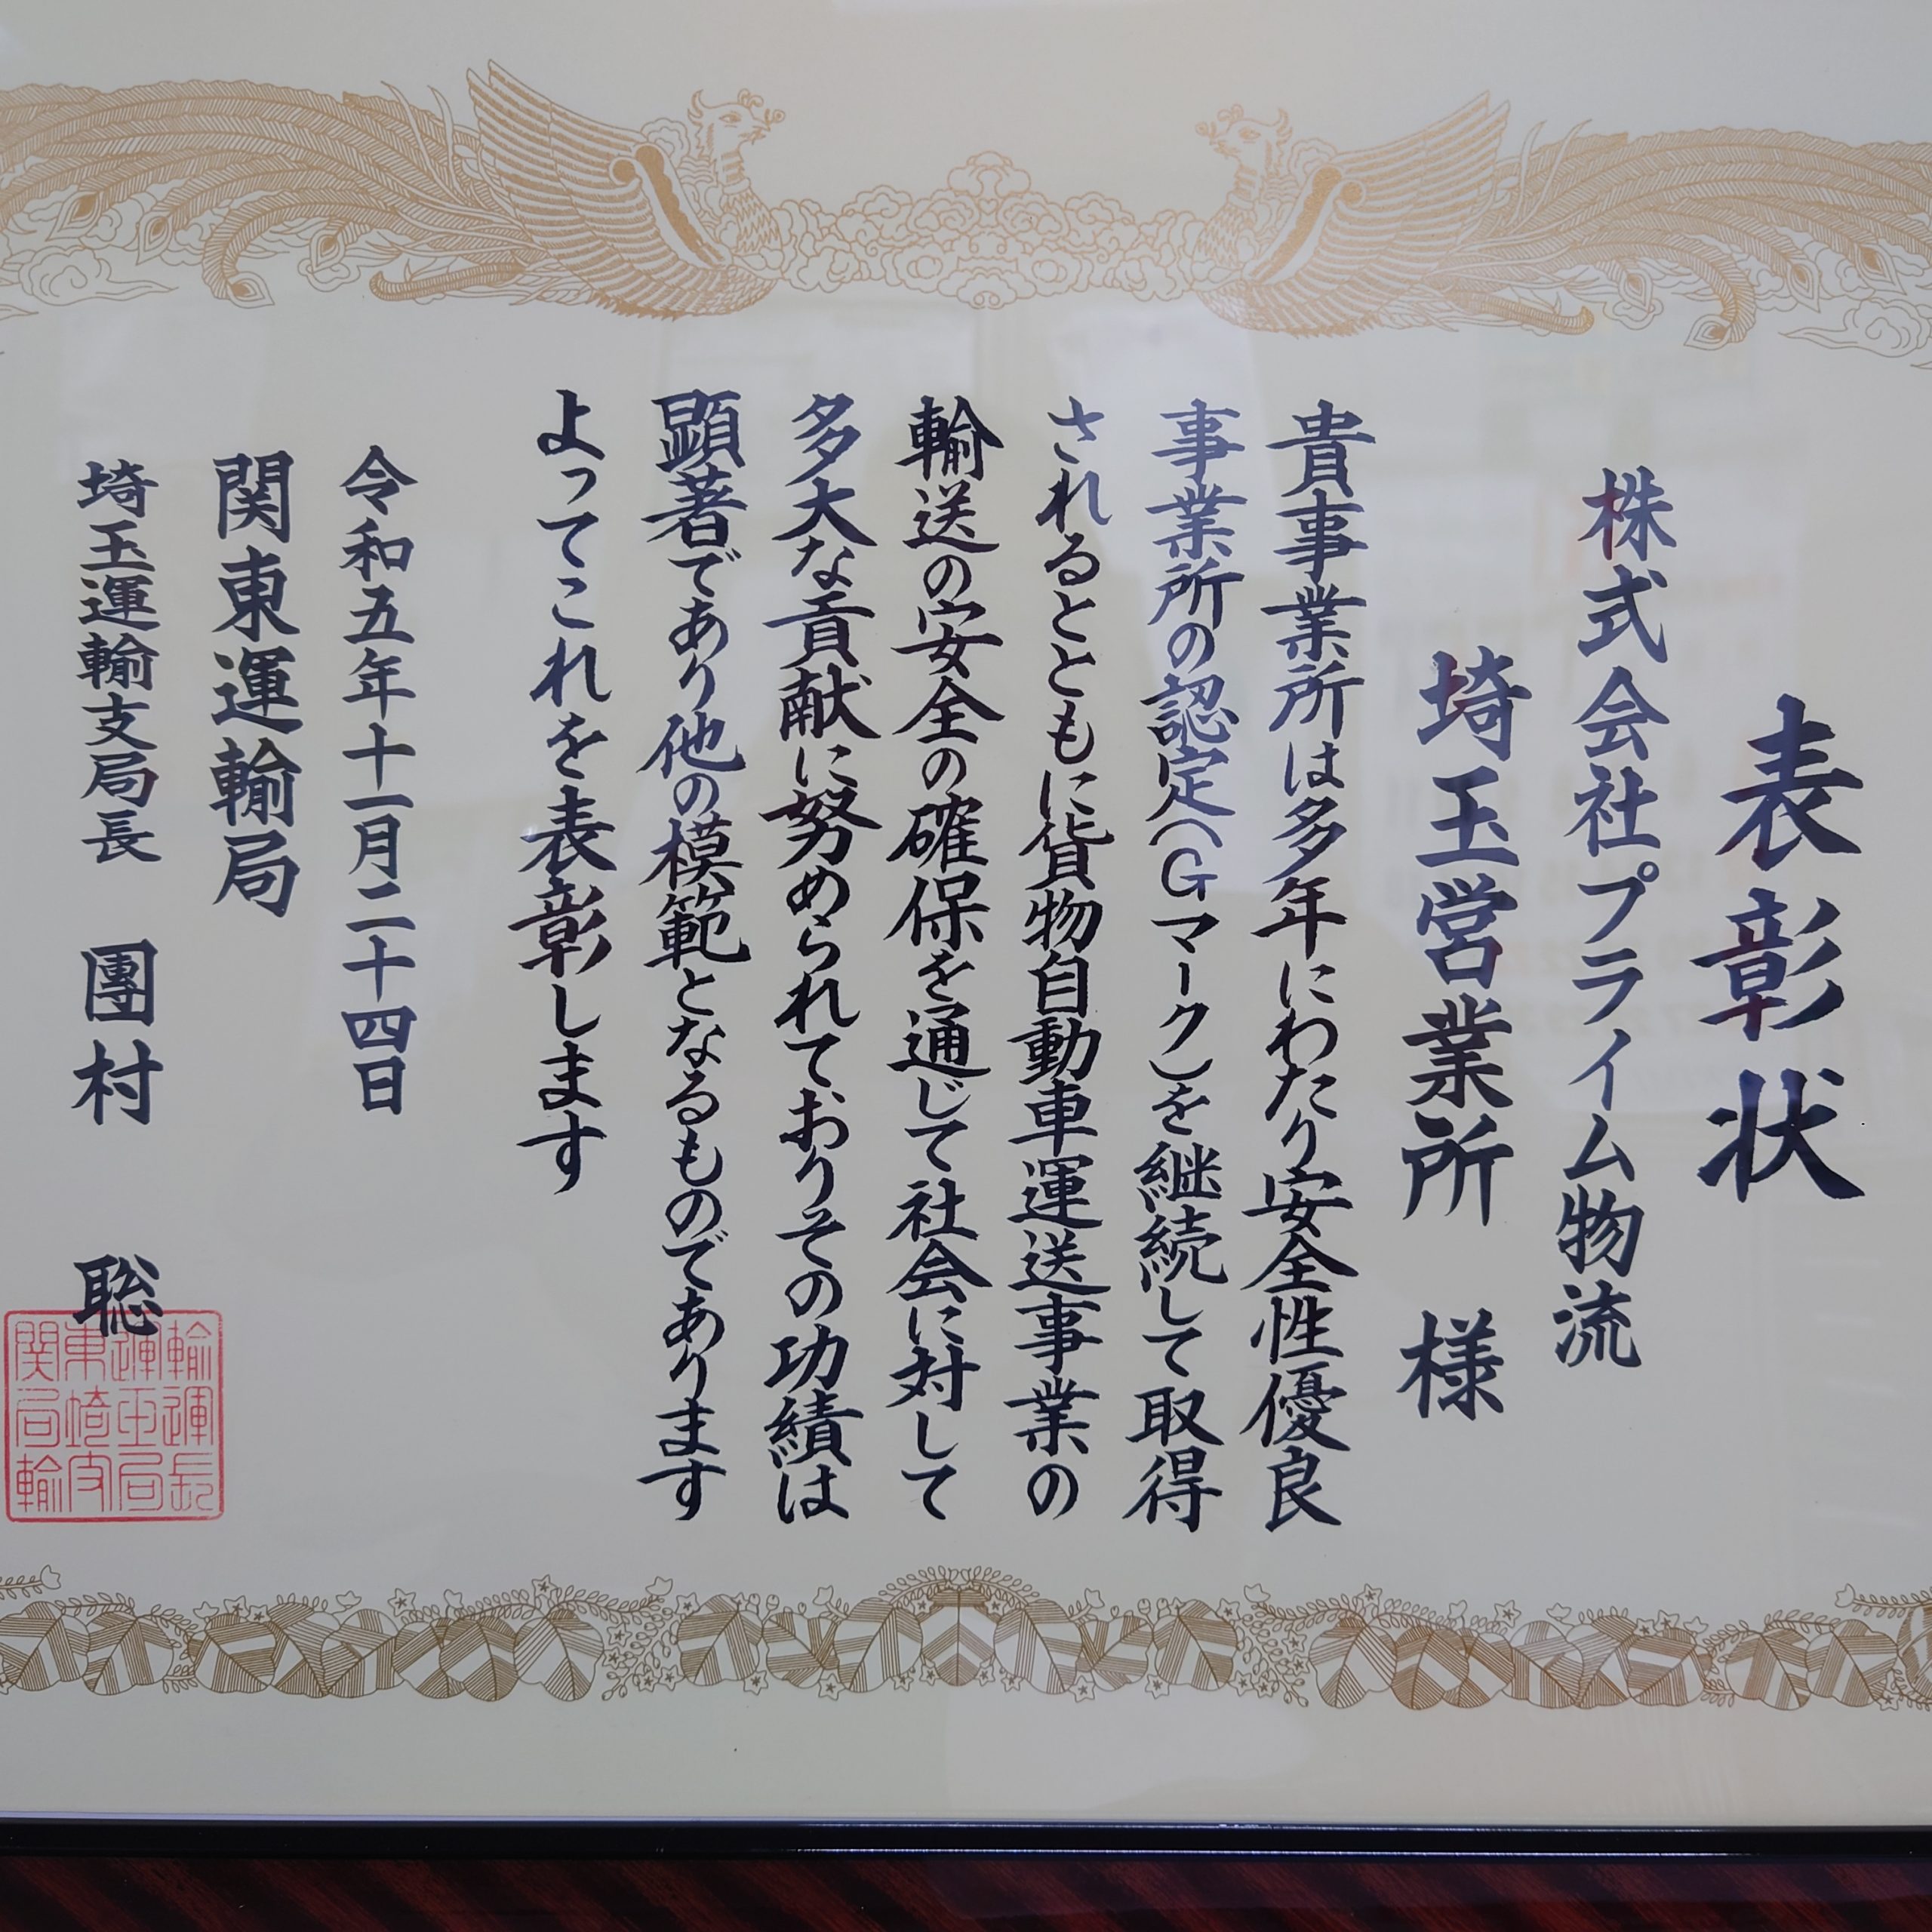 表彰状
株式会社プライム物流
埼玉営業所 様
貴事業所は多年にわたり安全性優良
事業所の認定(Gマーク)を継続して取得
されるとともに貨物自動車運送事業の
輸送の安全の確保を通じて社会に対して
多大な貢献に努められておりその功績は
顕著であり他の模範となるものであります
よってこれを表彰します
令和五年十一月二十四日
関東運輸局
埼玉運輸支局長 團村 聡